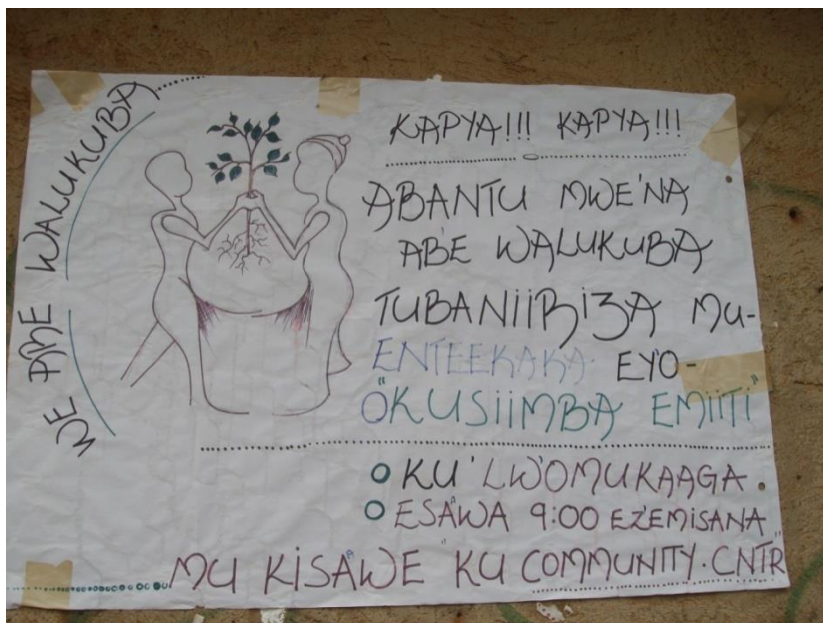 WE ARE WALUKUBA
KAPYA!!! KAPYA!!!
ABANTU MWE'NA
ABE WALUKUBA
TUBANIIRIZA MU-
ENTEEKAKA EYO-
"OKUSIIMBA EMIITI"
KU'LW'OMUKAAGA.
ESAWA 9:00 EZ'EMISANA
MU KISAWE "KU COMMUNITY. CNTR"